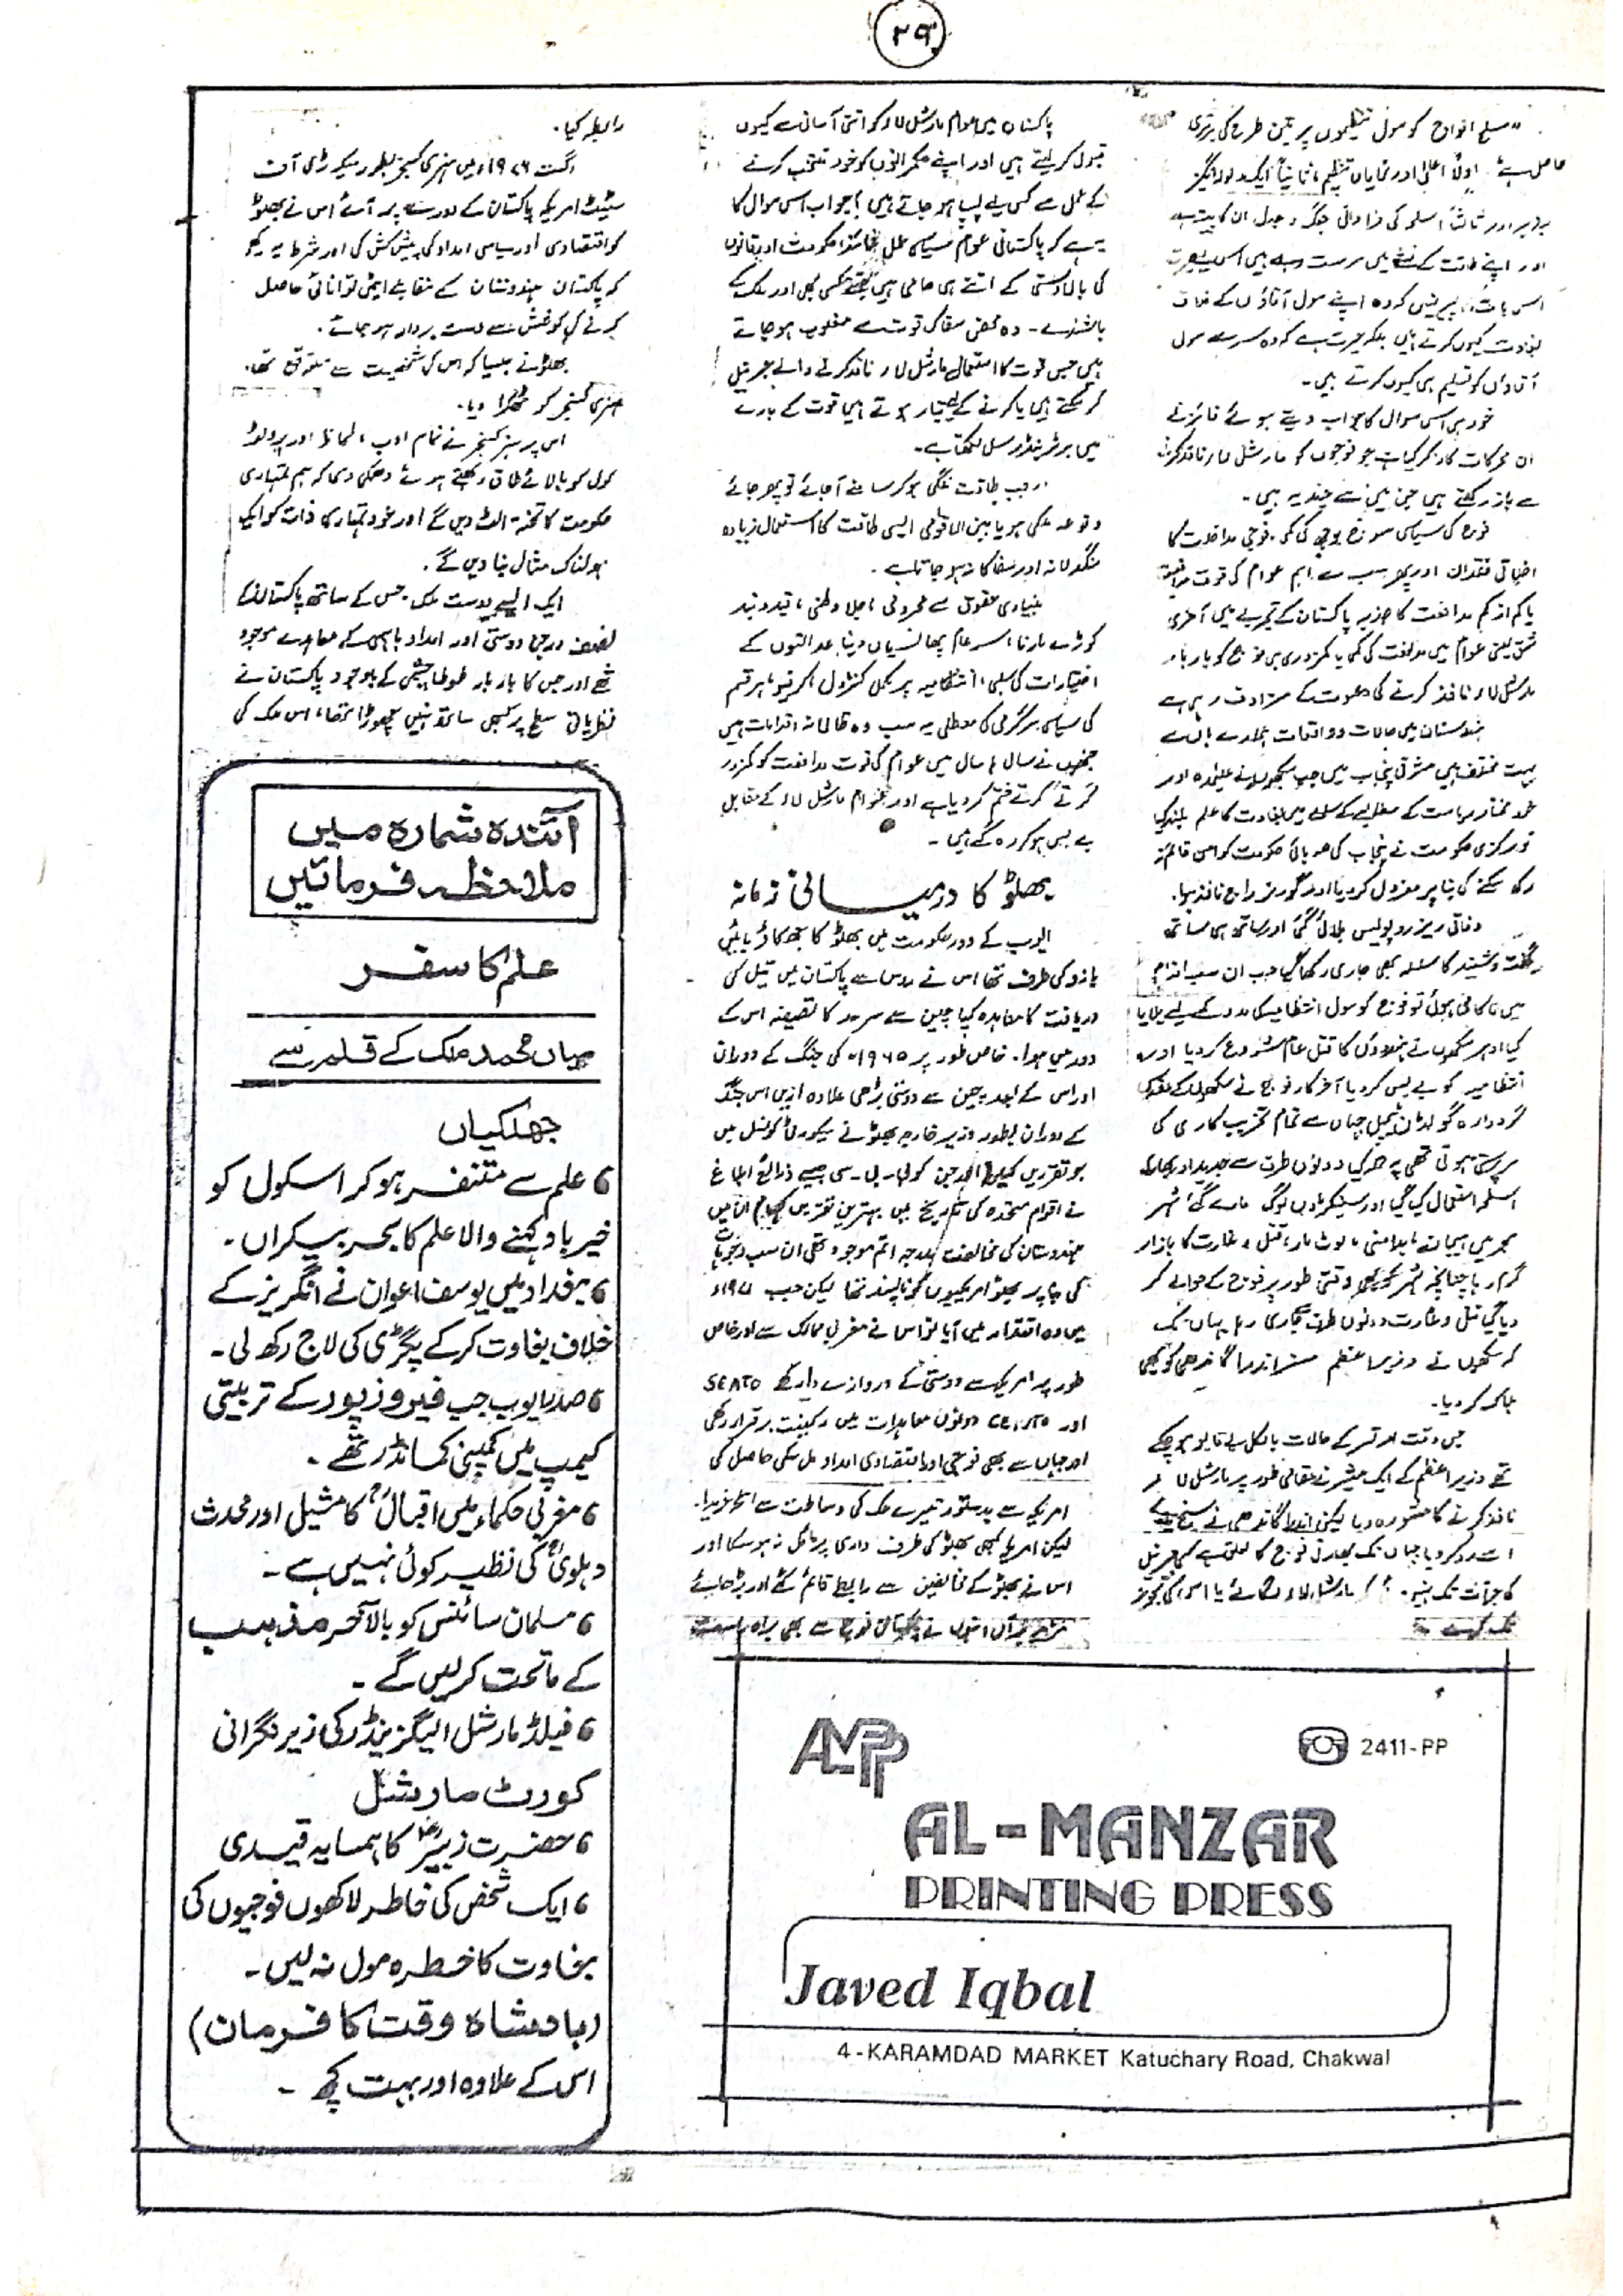 ۲۹
"مسلح افواج کو سول تنظیموں پر تین طرح کی برتری
حاصل ہے۔ اولاً اعلیٰ اور نمایاں تنظیم، ثانیاً ایک ولولہ انگیز
اور ثالثاً اسلحہ کی فراوانی جنگ و جدل ان کا پیشہ ہے
اور اپنے طاقت کے نشے میں سرمست رہتے ہیں اس لیے حیرت
اس بات پر نہیں کہ وہ اپنے سول آقاؤں کے خلاف
بغاوت کیوں کرتے ہیں بلکہ حیرت ہے کہ وہ سرے سول
آقاؤں کو تسلیم ہی کیوں کرتے ہیں۔
خود ہی اس سوال کا جواب دیتے ہوئے فائنر نے
ان محرکات کا ذکر کیا ہے جو فوجوں کو مارشل لاء نافذ کرنے
سے باز رکھتے ہیں جن میں سے چند یہ ہیں۔
فوج کی سیاسی سوجھ بوجھ کی کمی۔ فوجی مداخلت کا
اخلاقی فقدان اور پھر سب سے اہم عوام کی قوت مدافعت
یا کم از کم مدافعت کا جذبہ پاکستان کے تجربے میں آخری
شق یعنی عوام میں مدافعت کی کمی یا کمزوری ہی فوج کو بار بار
مارشل لاء نافذ کرنے کی دعوت کے مترادف رہی ہے
ہندوستان میں حالات و واقعات ہمارے ہاں سے
بہت مختلف ہیں مشرقی پنجاب میں جب سکھوں نے علیحدہ اور
خود مختار ریاست کے مطالبے کے سلسلے میں بغاوت کا علم بلند کیا
تو مرکزی حکومت نے پنجاب کی صوبائی حکومت کو امن قائم نہ
رکھ سکنے کی بنا پر معزول کر دیا اور گورنر راج نافذ ہوا۔
وفاقی ریزرو پولیس بلائی گئی اور ساتھ ہی ساتھ
گفت و شنید کا سلسلہ بھی جاری رکھا گیا جب ان سب اقدام
میں ناکامی ہوئی تو فوج کو سول انتظامیہ کی مدد کے لیے بلایا
گیا ادھر سکھوں نے ہندوؤں کا قتل عام شروع کر دیا اور
انتظامیہ کو بے بس کر دیا آخر کار فوج نے سکھوں کے مقدس
گردوارہ گولڈن ٹیمپل جہاں سے تمام تخریب کاری کی
سرپرستی ہوتی تھی پر حملہ کیا دونوں طرف سے جدید اور بھاری
اسلحہ استعمال کیا گیا اور سینکڑوں لوگ مارے گئے شہر
بھر میں ہیجان، بدامنی، لوٹ مار، قتل و غارت کا بازار
گرم رہا چنانچہ شہر کو بھی وقتی طور پر فوج کے حوالے کر
دیا گیا قتل و غارت دونوں طرف جاری رہا یہاں تک
کہ سکھوں نے وزیر اعظم مسز اندرا گاندھی کو بھی
ہلاک کر دیا۔
جس وقت امرتسر کے حالات بالکل بے قابو ہو چکے
تھے وزیر اعظم کے ایک مشیر نے مقامی طور پر مارشل لاء
نافذ کرنے کا مشورہ دیا لیکن اندرا گاندھی نے سختی سے
اسے رد کر دیا جہاں تک بھارتی فوج کا تعلق ہے کسی جرنیل
کو جرأت تک نہیں مارشل لاء لگائے یا اس کی تجویز
تک
پاکستان میں عوام مارشل لاء کو اتنی آسانی سے کیوں
قبول کر لیتے ہیں اور اپنے حکمرانوں کو خود منتخب کرنے
کے عمل سے کس لیے پسپا ہو جاتے ہیں؟ جواب اس سوال کا
یہ ہے کہ پاکستانی عوام سیاسی عمل نمائندہ حکومت اور قانون
کی بالا دستی کے اتنے ہی حامی ہیں جتنے کسی بھی اور ملک کے
باشندے۔ وہ محض سفاک قوت سے مغلوب ہو جاتے
ہیں جس قوت کا استعمال مارشل لاء نافذ کرنے والے جرنیل
کر سکتے ہیں یا کرنے کے لئے تیار ہوتے ہیں قوت کے بارے
میں برٹرینڈ رسل لکھتا ہے۔
"جب طاقت ننگی ہو کر سامنے آ جائے تو پھر جائے
وقوعہ ملکی ہو یا بین الاقوامی ایسی طاقت کا استعمال زیادہ
سنگدلانہ اور سفاکانہ ہو جاتا ہے۔
بنیادی حقوق سے محرومی، جلا وطنی، قید و بند
کوڑے مارنا، سر عام پھانسیاں دینا، عدالتوں کے
اختیارات کی سلبی، انتظامیہ پر مکمل کنٹرول، کرفیو، ہر قسم
کی سیاسی سرگرمی کی معطلی یہ سب وہ ظالمانہ اقدامات ہیں
جنہوں نے سال ہا سال میں عوام کی قوت مدافعت کو کمزور
کرتے کرتے ختم کر دیا ہے اور عوام مارشل لاء کے مقابل
بے بس ہو کر رہ گئے ہیں۔
بھٹو کا درمیانی زمانہ
ایوب کے دور حکومت میں بھٹو کا جھکاؤ بائیں
بازو کی طرف تھا اس نے روس سے پاکستان میں تیل کی
دریافت کا معاہدہ کیا چین سے سرحد کا تصفیہ اس کے
دور میں ہوا۔ خاص طور پر ۱۹۶۵ء کی جنگ کے دوران
اور اس کے بعد چین سے دوستی بڑھی علاوہ ازیں اس جنگ
کے دوران بطور وزیر خارجہ بھٹو نے سیکورٹی کونسل میں
جو تقریریں کیں الجزین کو بی۔ بی۔ سی جیسے ذرائع ابلاغ
نے اقوام متحدہ کی تاریخ میں بہترین تقریریں کہا ان میں
ہندوستان کی مخالفت بدرجہ اتم موجود تھی ان سب وجوہات
کی بنا پر بھٹو امریکیوں کو ناپسند تھا لیکن جب ۱۹۷۱ء
میں وہ اقتدار میں آیا تو اس نے مغربی ممالک سے اور خاص
طور پر امریکہ سے دوستی کے دروازے وا رکھے SEATO
اور CENTO دونوں معاہدات میں رکنیت برقرار رکھی
اور جہاں سے بھی فوجی اور اقتصادی امداد مل سکی حاصل کی
امریکہ سے بدستور تیسرے ملک کی وساطت سے اسلحہ خریدا۔
لیکن امریکا کبھی بھٹو کی طرف داری پر مائل نہ ہو سکا اور
اس نے بھٹو کے مخالفین سے رابطے قائم کئے اور بڑھائے
مزید برآں انہوں نے پاکستانی فوج سے بھی براہ راست
رابطہ کیا۔
اگست ۱۹۷۶ء میں ہنری کسنجر بطور سیکریٹری آف
سٹیٹ امریکہ پاکستان کے دورے پر آئے اس نے بھٹو
کو اقتصادی اور سیاسی امداد کی پیش کش کی اور شرط یہ رکھی
کہ پاکستان ہندوستان کے مقابلے ایٹمی توانائی حاصل
کرنے کی کوشش سے دست بردار ہو جائے۔
بھٹو نے جیسا کہ اس کی شخصیت سے متوقع تھا۔
ہنری کسنجر کو ٹھکرا دیا۔
اس پر ہنری کسنجر نے تمام ادب، لحاظ اور پروٹو
کول کو بالائے طاق رکھتے ہوئے دھمکی دی کہ ہم تمہاری
حکومت کا تختہ الٹ دیں گے اور خود تمہاری ذات کو ایک
ہولناک مثال بنا دیں گے۔
ایک ایسے دوست ملک، جس کے ساتھ پاکستان کے
نصف درجن دوستی اور امداد باہمی کے معاہدے موجود
تھے اور جس کا بار بار طوطا چشمی کے باوجود پاکستان نے
نظریاتی سطح پر کبھی ساتھ نہیں چھوڑا تھا، اس ملک کی
آئندہ شمارہ میں
ملاحظہ فرمائیں
علم کا سفر
میاں محمد ملک کے قلم سے
جھلکیاں
علم سے متنفر ہو کر اسکول کو
خیر باد کہنے والا علم کا بحر بیکراں۔
بغداد میں یوسف اعوان نے انگریز کے
خلاف بغاوت کر کے پگڑی کی لاج رکھ لی۔
صدر ایوب جب فیروز پور کے تربیتی
کیمپ میں کمپنی کمانڈر تھے۔
مغربی حکماء میں اقبالؒ کا مثیل اور محدث
دہلویؒ کی نظیر کوئی نہیں ہے۔
مسلمان سائنس کو بالآخر مذہب
کے ماتحت کر لیں گے۔
فیلڈ مارشل الیگزینڈر کی زیر نگرانی
کورٹ مارشل
حضرت زبیرؓ کا ہمسایہ قیدی
ایک شخص کی خاطر لاکھوں فوجیوں کی
بغاوت کا خطرہ مول نہ لیں۔
(بادشاہ وقت کا فرمان)
اس کے علاوہ اور بہت کچھ۔
AMPP
2411-PP
AL-MANZAR
PRINTING PRESS
Javed Iqbal
4-KARAMDAD MARKET Katuchary Road, Chakwal